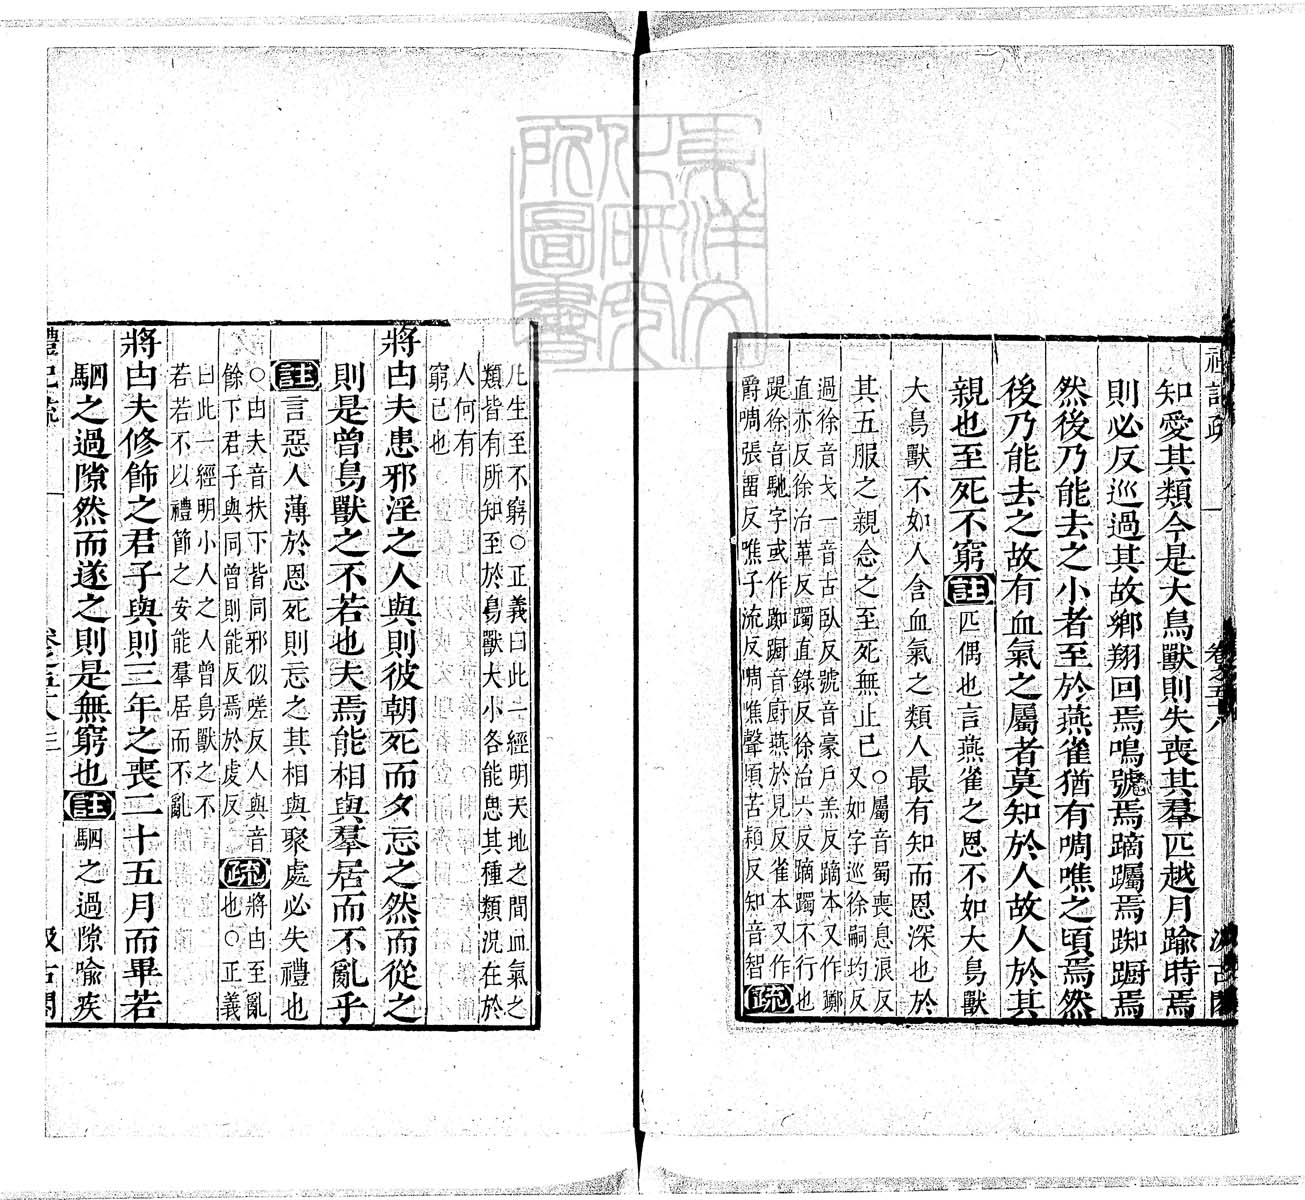 知愛其類今是大鳥獸則失喪其羣匹越月踰時焉
則必反巡過其故鄉翔回焉鳴號焉蹢躅焉踟躕焉
然後乃能去之小者至於燕雀猶有啁噍之頃焉然
後乃能去之故有血氣之屬者莫知於人故人於其
親也至死不窮註匹偶也言燕雀之恩不如大鳥獸
大鳥獸不如人含血氣之類人最有知而恩深也於
其五服之親念之至死無止已
○屬音蜀喪息浪反
又如字巡徐嗣均反
過徐音戈一音古臥反號音豪戶羔反蹢本又作躑
直亦反徐治革反躅直錄反徐治六反蹢躅不行也
踶徐音馳字或作踟躕音厨燕於見反雀本又作
爵啁張留反噍子流反啁噍聲頃苦潁反知音智
疏
凡生至不窮○正義曰此一經明天地之間血氣之
類皆有所知至於鳥獸大小各能思其種類況在於
人何有
窮已也
將由夫患邪淫之人與則彼朝死而夕忘之然而從之
則是曾鳥獸之不若也夫焉能相與羣居而不亂乎
註言惡人薄於恩死則忘之其相與聚處必失禮也
○由夫音扶下皆同邪似嗟反人與音
餘下君子與同曾則能反焉於虔反
疏
將由至亂
也○正義
曰此一經明小人之人曾鳥獸之不
若若不以禮節之安能羣居而不亂
將由夫修飾之君子與則三年之喪二十五月而畢若
駟之過隙然而遂之則是無窮也註駟之過隙喻疾
禮記疏
卷之五十八
汲古閣
東洋文
化研究
所圖書